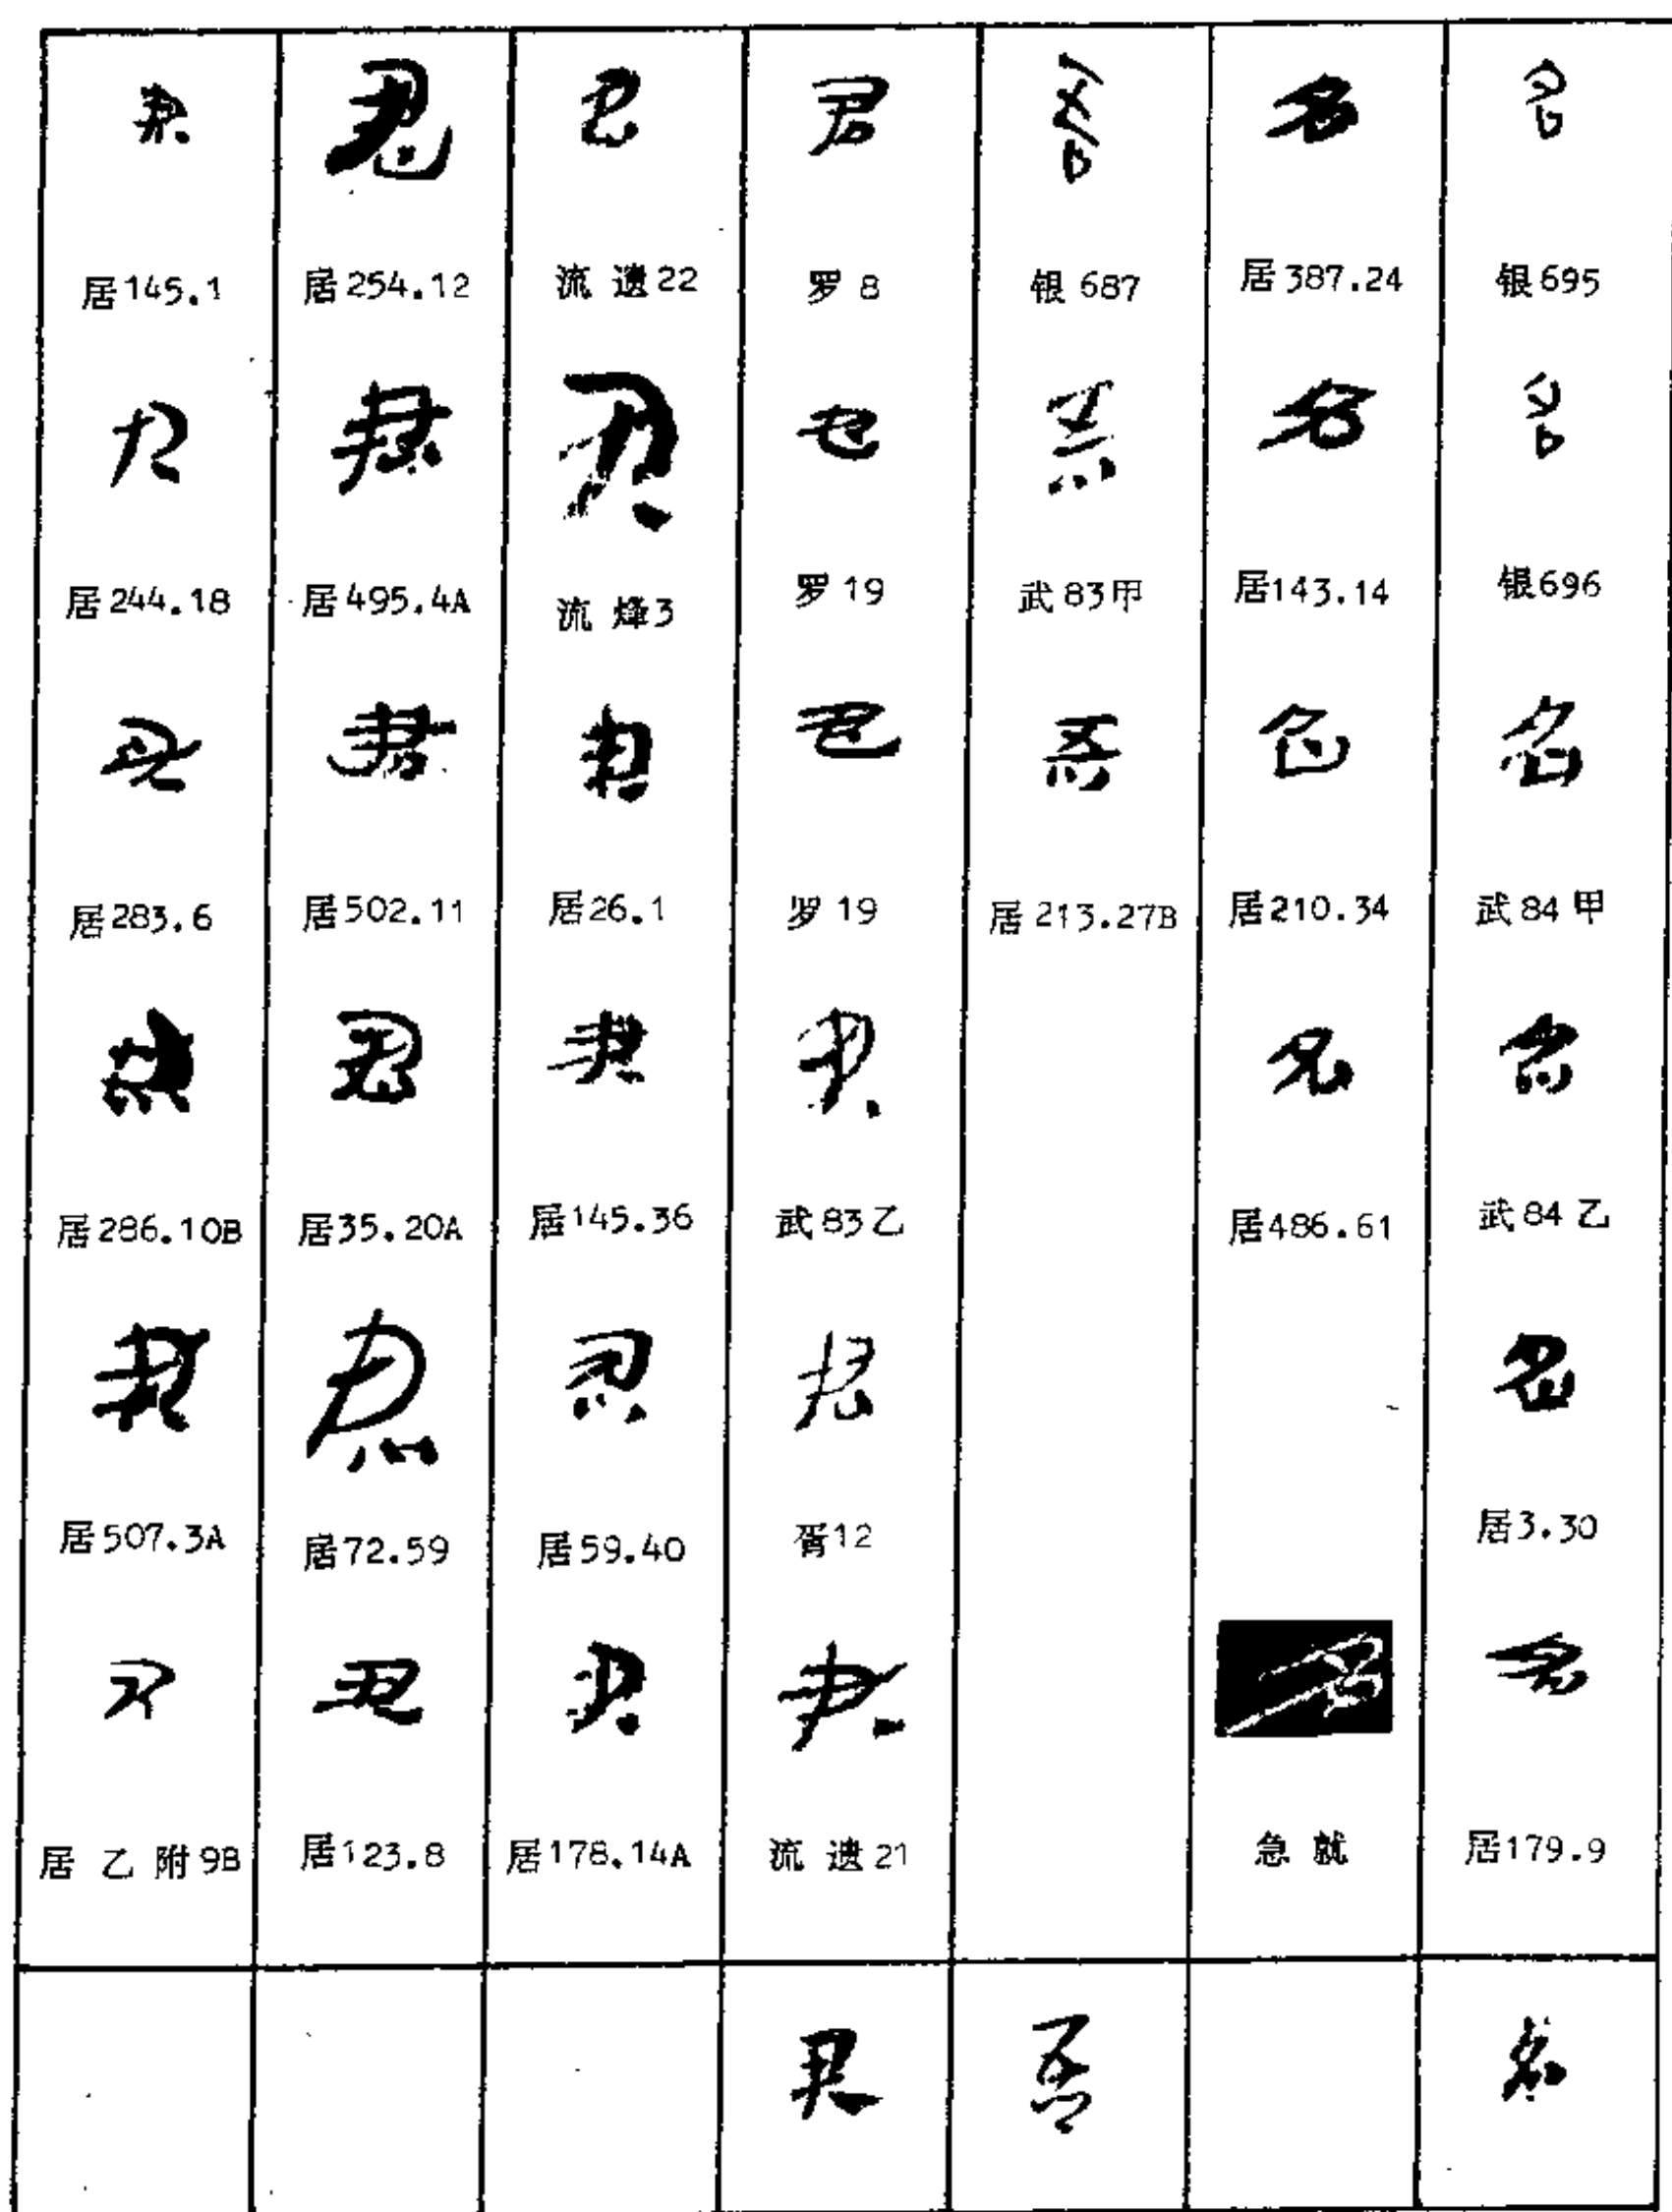 君 君 君 君 吾 名 名
居145.1 居254.12 流 遗22 罗 8 银 687 居387.24 银695
君 君 君 君 吾 名 名
居244.18 居495.4A 流 烽3 罗 19 武83甲 居143.14 银696
君 君 君 君 吾 名 名
居283.6 居502.11 居26.1 罗 19 居213.27B 居210.34 武84甲
君 君 君 君 名 名
居286.10B 居35.20A 居145.36 武83乙 居486.61 武84乙
君 君 君 君 名
居507.3A 居72.59 居59.40 胥12 居3.30
君 君 君 君 名 名
居 乙 附9B 居123.8 居178.14A 流 遗21 急 就 居179.9
君 吾 名